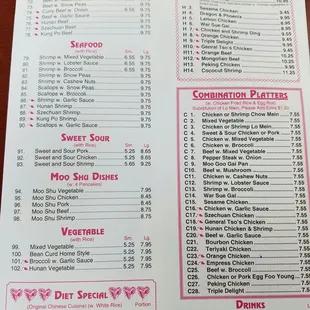 Beef w. Snow Peas 9.75
Curry Beef w. Onion 6.55 9.75
Beef w. Garlic Sauce 9.75
9.75
Szechuan Beef 9.75
78. Kung Po Beef 9.75
SEAFOOD
(with Rice) Sm. Lg.
79. Shrimp w. Mixed Vegetable 6.55 9.75
Shrimp w. Broccoli 6.55 9.75
Shrimp w. Snow Peas 9.75
Shrimp w. Cashew Nuts 9.75
Scallops w. Snow Peas 9.75
Scallops w. Broccoli 9.75
Shrimp w. Garlic Sauce 9.75
Hunan Shrimp 9.75
Szechuan Shrimp 9.75
Kung Po Shrimp 9.75
Scallops w. Garlic Sauce 9.75
SWEET SOUR
(with Rice) Sm. Lg.
91. Sweet and Sour Pork 5.25 8.65
92. Sweet and Sour Chicken 5.25 8.65
93. Sweet and Sour Shrimp 5.65 9.25
MOO SHU DISHES
(w. 4 Pancakes)
94. Moo Shu Vegetable 7.95
95. Moo Shu Chicken 8.45
96. Moo Shu Pork 8.45
97. Moo Shu Beef 8.75
98. Moo Shu Shrimp 8.75
VEGETABLE
(with Rice) Sm. Lg.
99. Mixed Vegetable 5.25 7.95
100. Bean Curd Home Style 7.95
101. Broccoli w. Garlic Sauce 5.25 7.95
102. Hunan Vegetable 7.95
DIET SPECIAL
(Original Chinese Cuisine) (w. White Rice) Portion
H 3. Sesame Chicken 9.45
H 4. Dragon & Phoenix 9.95
H 5. Lemon Chicken 9.45
H 6. War Sue Gai
H 7. Chicken and Shrimp Ding
H 8. Orange Chicken
H 9. Triple Delight
H10. Genral Tso's Chicken
H11. Orange Beef
H12. Mongolian Beef
H13. Peking Chicken
H14. Coconut Shrimp
COMBINATION PLATTERS
(w. Chicken Fried Rice & Egg Roll)
C 1. Chicken or Shrimp Chow Main 7.55
C 2. Chicken or Shrimp Lo Main 7.55
C 4. Sweet & Sour Chicken or Pork 7.55
C 5. Chicken w. Mixed Vegetable 7.55
C 6. Chicken w. Broccoli 7.55
C 7. Beef w. Mixed Vegetable 7.55
C 8. Pepper Steak w. Onion 7.55
C 9. Moo Goo Gai Pan 7.55
C10. Beef w. Mushroom 7.55
C11. Chicken w. Cashew Nut 7.55
C12. Shrimp w. Lobster Sauce 7.55
C13. Shrimp w. Broccoli 7.55
C14. War Sue Gai 7.55
C15. Shrimp w. Garlic Sauce 7.55
C16. Chicken w. Garlic Sauce 7.55
C17. Szechuan Chicken 7.55
C18. General Tso's Chicken 7.55
C19. Hunan Chicken & Shrimp 7.55
C20. Chicken w. Vegetable 7.55
C21. Bourbon Chicken 7.55
C22. Teriyaki Chicken 7.55
C23. Orange Chicken 7.55
C24. Empress Chicken 7.55
C25. Beef w. Broccoli 7.55
C26. Chicken or Pork Egg Foo Young 7.55
C27. Peking Chicken 7.55
C28. Triple Delight 7.55
DRINKS